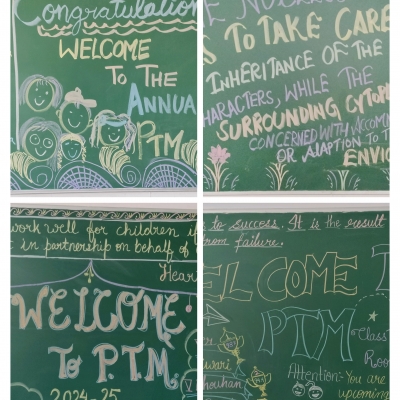 Congratulation
WELCOME
TO THE
ANNUA
PTM
TO TAKE CARE
INHERITANCE OF THE
HARACTERS, WHILE THE
SURROUNDING CYTOP
CONCERNED WITH ACCOMM
OR ADAPTION TO T
ENVIO
work well for children if
t in partnership on behalf of
Hear
WELCOME
To P.TM.
2024-25
V
s to success. It is the result
from failure.
ELCOME T
PTM
Class
Roo
wari
houhan
Attention:- You are
upcoming